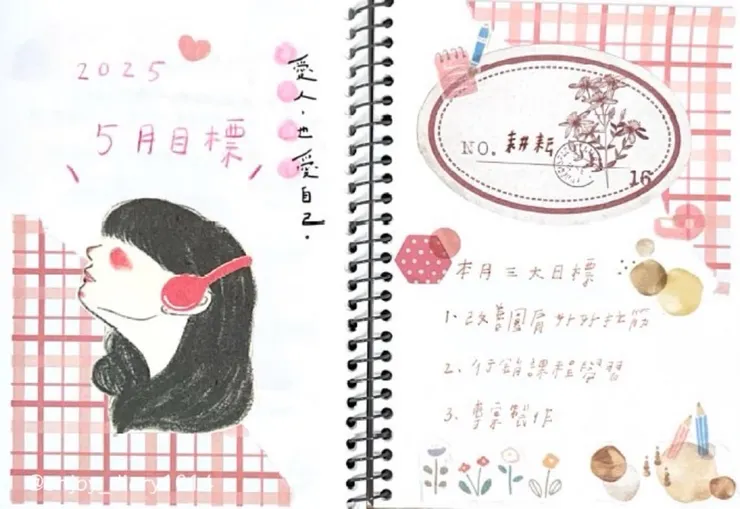 2025
5月目標
愛人,也愛自己.
NO. 耕耘
16
本月三大目標
1. 改善圓肩 好好拉筋
2. 行銷課程學習
3. 專案製作